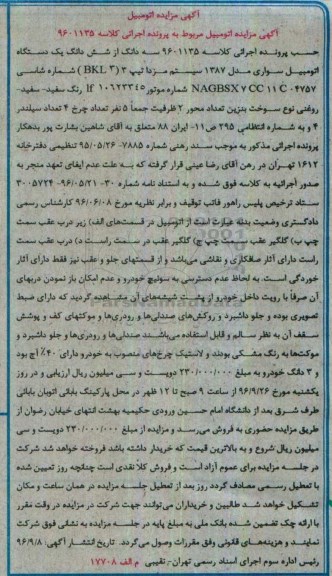 آگهی مزایده اتومبیل
آگهی مزایده اتومبیل مربوط به پرونده اجرائی کلاسه ۹۶۰۱۱۳۵
حسب پرونده اجرائی کلاسه ۹۶۰۱۱۳۵ سه دانگ از شش دانگ یک دستگاه
اتومبیل سواری مدل ۱۳۸۷ سیستم مزدا تیپ ۳ (BKL ۳) شماره شاسی
NAGBSX ۷ CC ۱۱ C ۰۴۷۵۷ شماره موتور lf ۱۰۶۲۲۳۴۵ رنگ سفید- سفید-
روغنی نوع سوخت بنزین تعداد محور ۲ ظرفیت جمعاً ۵ نفر تعداد چرخ ۴ تعداد سیلندر
۴ و به شماره انتظامی ۲۹۵ ص۱۱- ایران ۸۸ متعلق به آقای شاهین بشارت پور بدهکار
پرونده اجرائی مذکور به موجب سند رهنی شماره ۷۸۸۵- ۹۵/۰۵/۲۶ تنظیمی دفترخانه
۱۶۱۲ تهران در رهن آقای رضا عینی قرار گرفته که به علت عدم ایفای تعهد منجر به
صدور اجرائیه به کلاسه فوق شده و به استناد نامه شماره ۳۰- ۹۶/۰۵/۲۱- ۳۰۰۵۷۲۴
ستاد ترخیص پلیس راهور فاتب توقیف و برابر نظریه مورخ ۹۶/۰۶/۰۸ کارشناس رسمی
دادگستری وضعیت بدنه عبارت است از اتومبیل در قسمت‌های الف) زیر درب عقب سمت
چپ ب) گلگیر عقب سمت چپ ج) گلگیر عقب در سمت راست د) درب عقب سمت
راست دارای آثار صافکاری و نقاشی می‌باشد و از قسمتهای جلو و عقب نیز فقط دارای آثار
خوردگی است. به لحاظ عدم دسترسی به سوئیچ خودرو و عدم امکان باز نمودن دربهای
آن صرفاً با رویت داخل خودرو از پشت شیشه‌های آن مشاهده گردید که دارای ضبط
تصویری بوده و جلو داشبرد و روکش‌های صندلی‌ها و رودری‌ها و موکتهای کف و پوشش
سقف آن به نظر سالم و قابل استفاده می‌باشند صندلی‌ها و رودری‌ها و جلو داشبرد و
موکت‌ها به رنگ مشکی بودند و لاستیک چرخ‌های منصوب به خودرو دارای ۴۰٪ آج بود
و ۳ دانگ خودرو به مبلغ ۲۳۰/۰۰۰/۰۰۰ دویست و سی میلیون ریال ارزیابی و در روز
یکشنبه مورخ ۹۶/۹/۲۶ از ساعت ۹ صبح تا ۱۲ ظهر در محل پارکینگ بابائی اتوبان بابائی
طرف شرق بعد از دانشگاه امام حسین ورودی حکیمیه بهشت انتهای خیابان رضوان از
طریق مزایده حضوری به فروش می‌رسد و مزایده از مبلغ ۲۳۰/۰۰۰/۰۰۰ دویست و سی
میلیون ریال شروع و به بالاترین قیمت که خریدار داشته باشد فروخته خواهد شد شرکت
در جلسه مزایده برای عموم آزاد است و فروش کلا نقدی است چنانچه روز تعیین شده
با تعطیل رسمی مصادف گردد روز بعد از تعطیل جلسه مزایده در همان ساعت و مکان
تشکیل خواهد شد طالبین و خریداران می‌توانند جهت شرکت در مزایده در وقت مقرر
با ارائه چک تضمین شده بانک ملی به مبلغ پایه در جلسه مزایده به نشانی فوق شرکت
نمایند و هزینه‌های قانونی وفق مقررات وصول می‌گردد. تاریخ انتشار آگهی: ۹۶/۹/۸
رئیس اداره سوم اجرای اسناد رسمی تهران- نقیبی م الف ۱۷۷۰۸